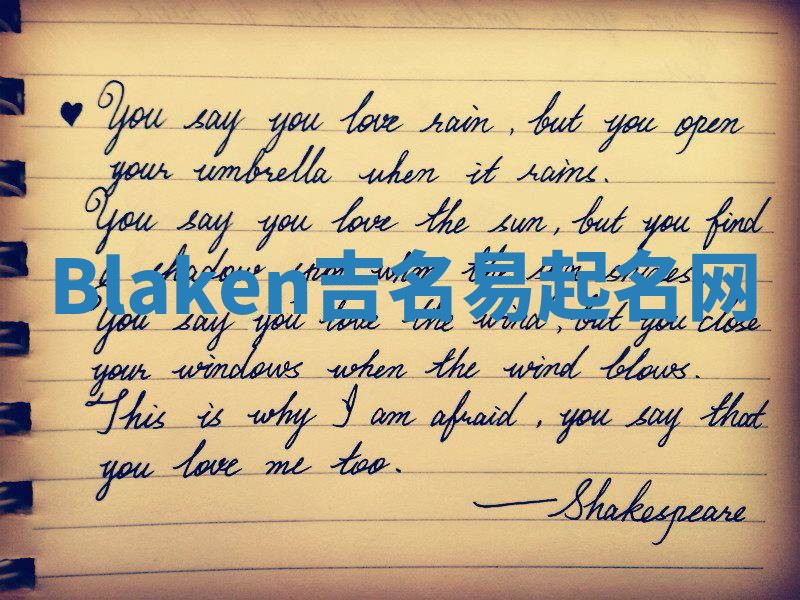 You say you love rain, but you open
your umbrella when it rains.
You say you love the sun, but you find
a shadow spot when the sun shines.
Blaken吉名易起名网
You say you love the wind, but you close
your windows when the wind blows.
This is why I am afraid, you say that
you love me too.
—Shakespeare